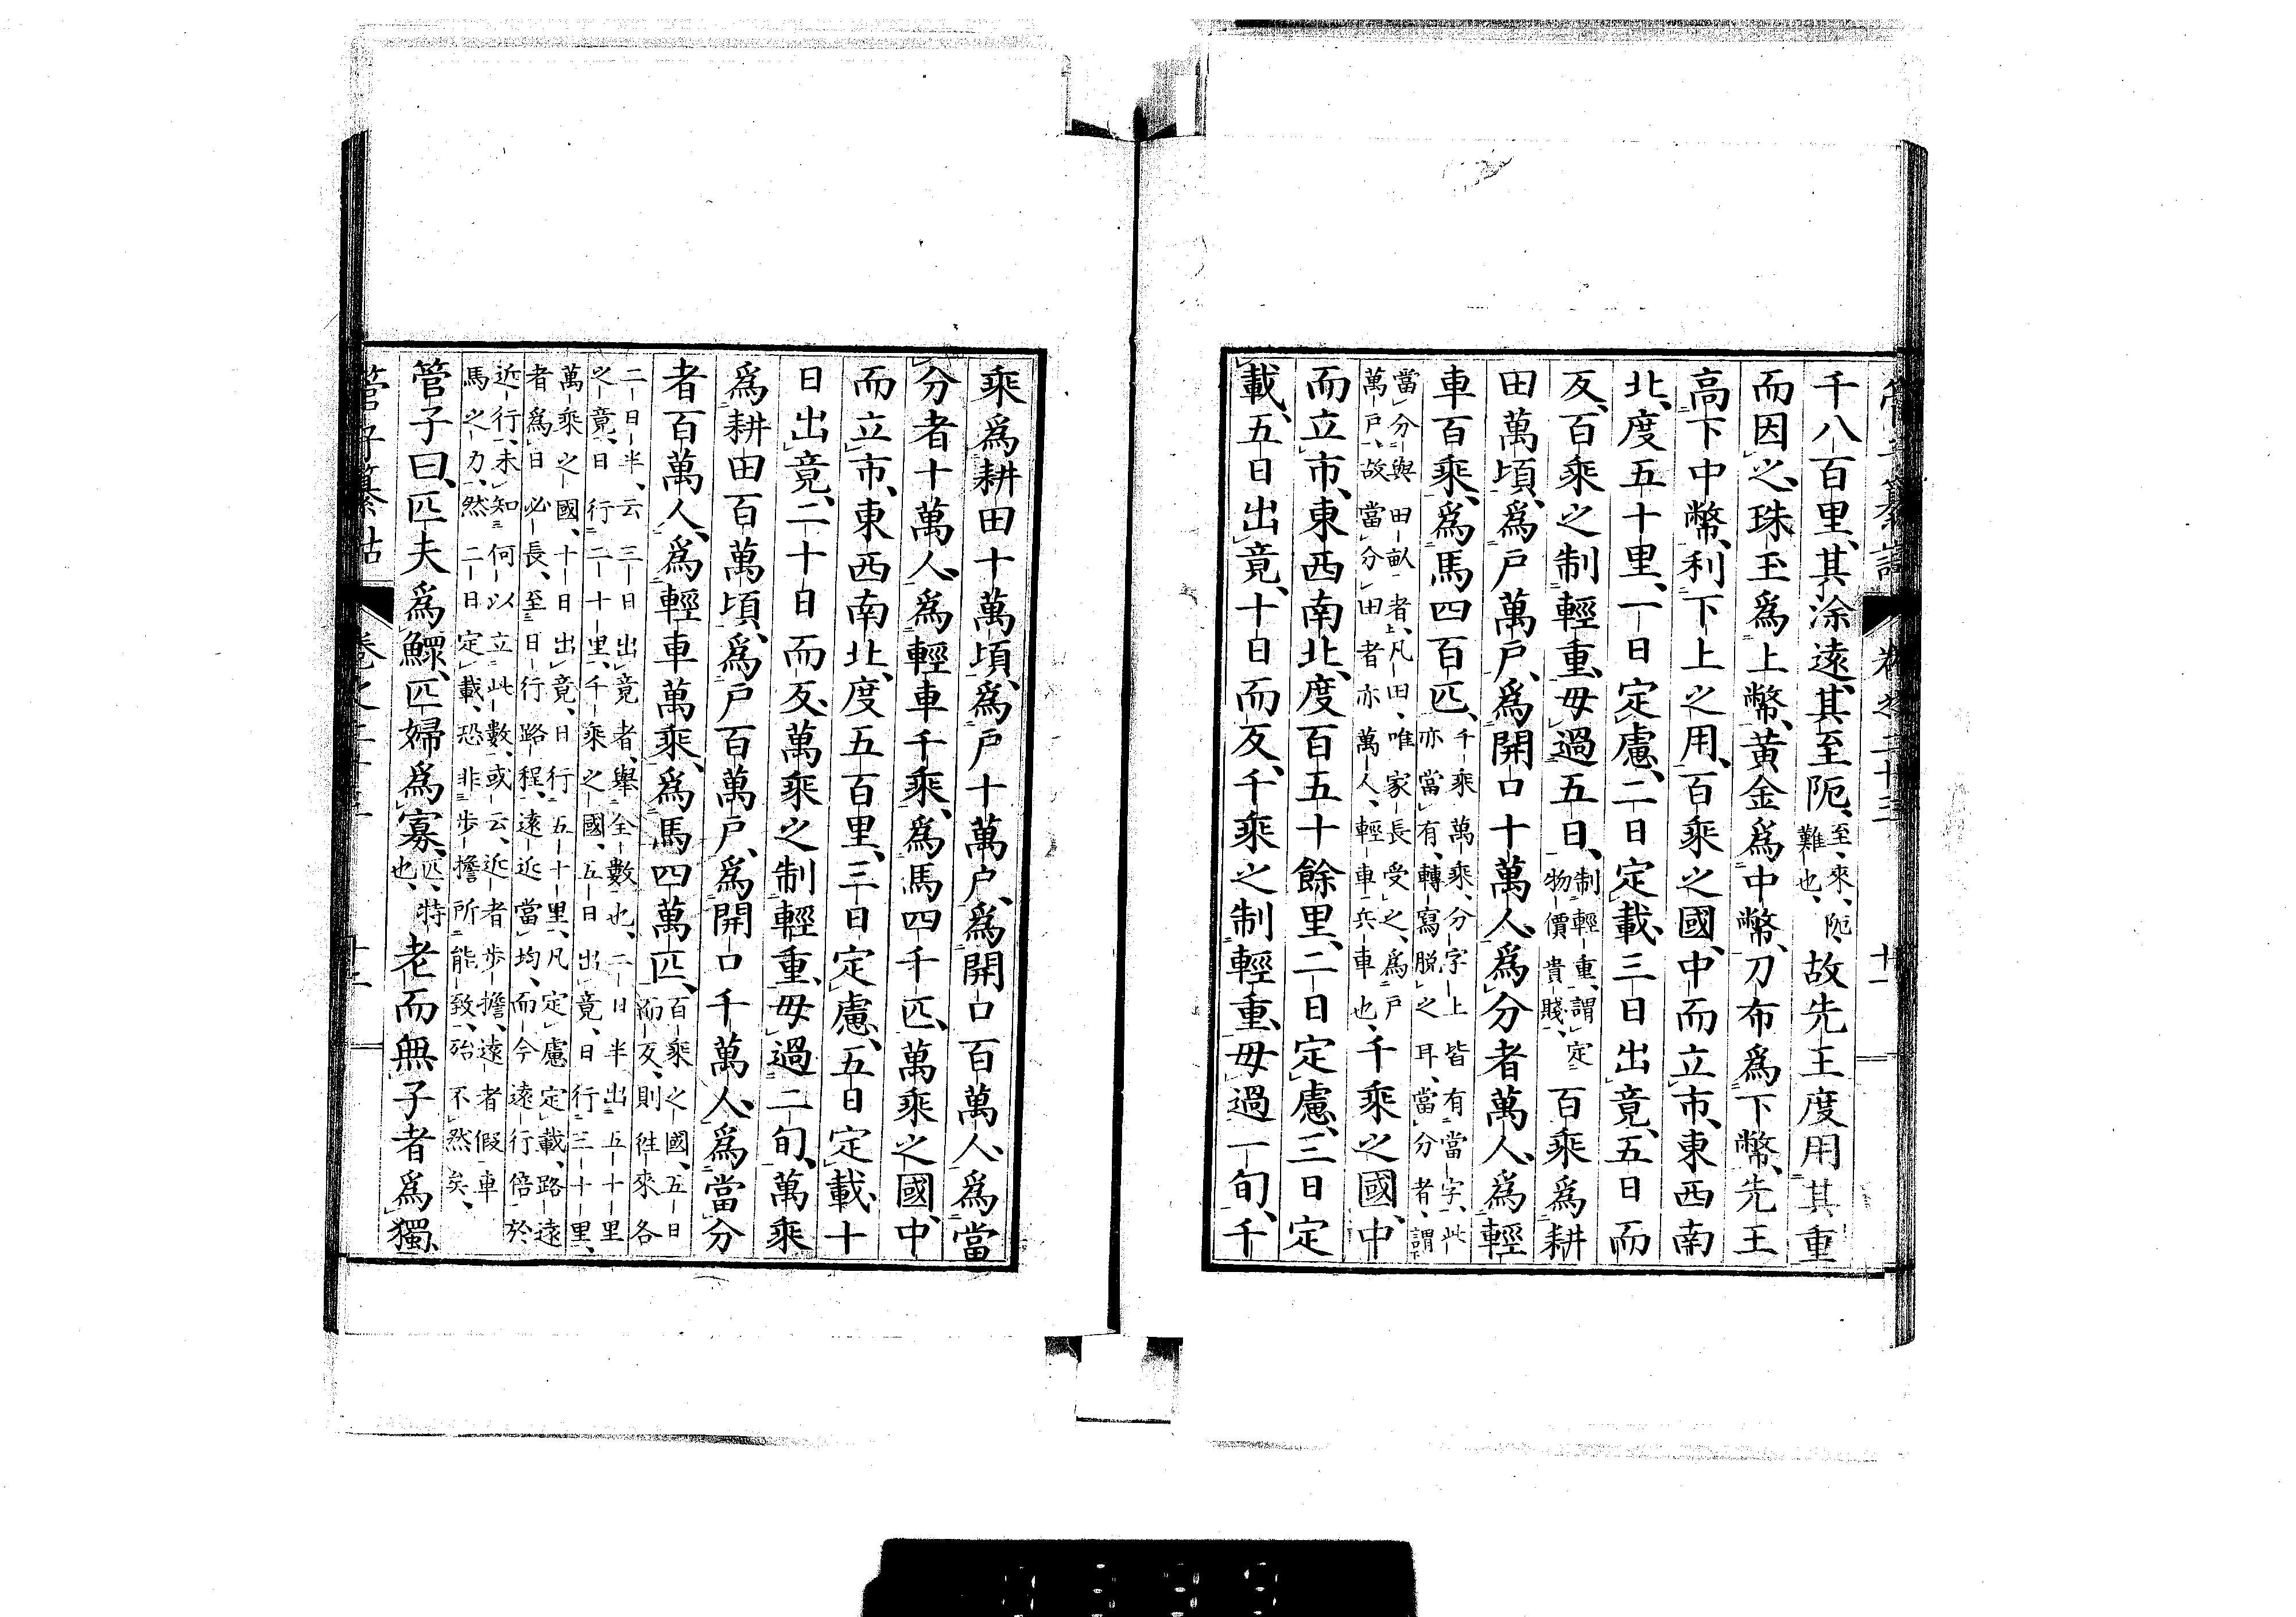 管子纂詁　卷之二十三　十一
千八百里、其涂遠、其至阨、至、來、阨、難也、故先王度用其重
而因之、珠玉爲上幣、黃金爲中幣、刀布爲下幣、先王
高下中幣、利下上之用、百乘之國、中而立市、東西南
北、度五十里、一日定慮、二日定載、三日出竟、五日而
反、百乘之制輕重、毋過五日、制輕重、謂定物價貴賤、百乘爲耕
田萬頃、爲戶萬戶、爲開口十萬人、爲分者萬人、爲輕
車百乘、爲馬四百匹、千乘萬乘、分字上皆有當字、此亦當有、轉寫脫之耳、當分者、謂
當分與田畝者、凡田、唯家長受之、爲戶萬戶、故當分田者亦萬人、輕車、兵車也、千乘之國、中
而立市、東西南北、度百五十餘里、二日定慮、三日定
載、五日出竟、十日而反、千乘之制輕重、毋過一旬、千
乘爲耕田十萬頃、爲戶十萬戶、爲開口百萬人、爲當
分者十萬人、爲輕車千乘、爲馬四千匹、萬乘之國、中
而立市、東西南北、度五百里、三日定慮、五日定載、十
日出竟、二十日而反、萬乘之制輕重、毋過二旬、萬乘
爲耕田百萬頃、爲戶百萬戶、爲開口千萬人、爲當分
者百萬人、爲輕車萬乘、爲馬四萬匹、百乘之國、五日而反、則往來各
二日半、云三日出竟者、舉全數也、二日半出五十里之竟、日行二十里、千乘之國、五日出竟、日行三十里、
萬乘之國、十日出竟、日行五十里、凡定慮定載、路遠者爲日必長、至日行路程、遠近當均、而今遠行倍於
近行、未知何以立此數、或云、近者步擔、遠者假車馬之力、然二日定載、恐非步擔所能致、殆不然矣、
管子曰、匹夫爲鰥、匹婦爲寡、匹、特也、老而無子者爲獨、
管子纂詁　卷之二十三　十一